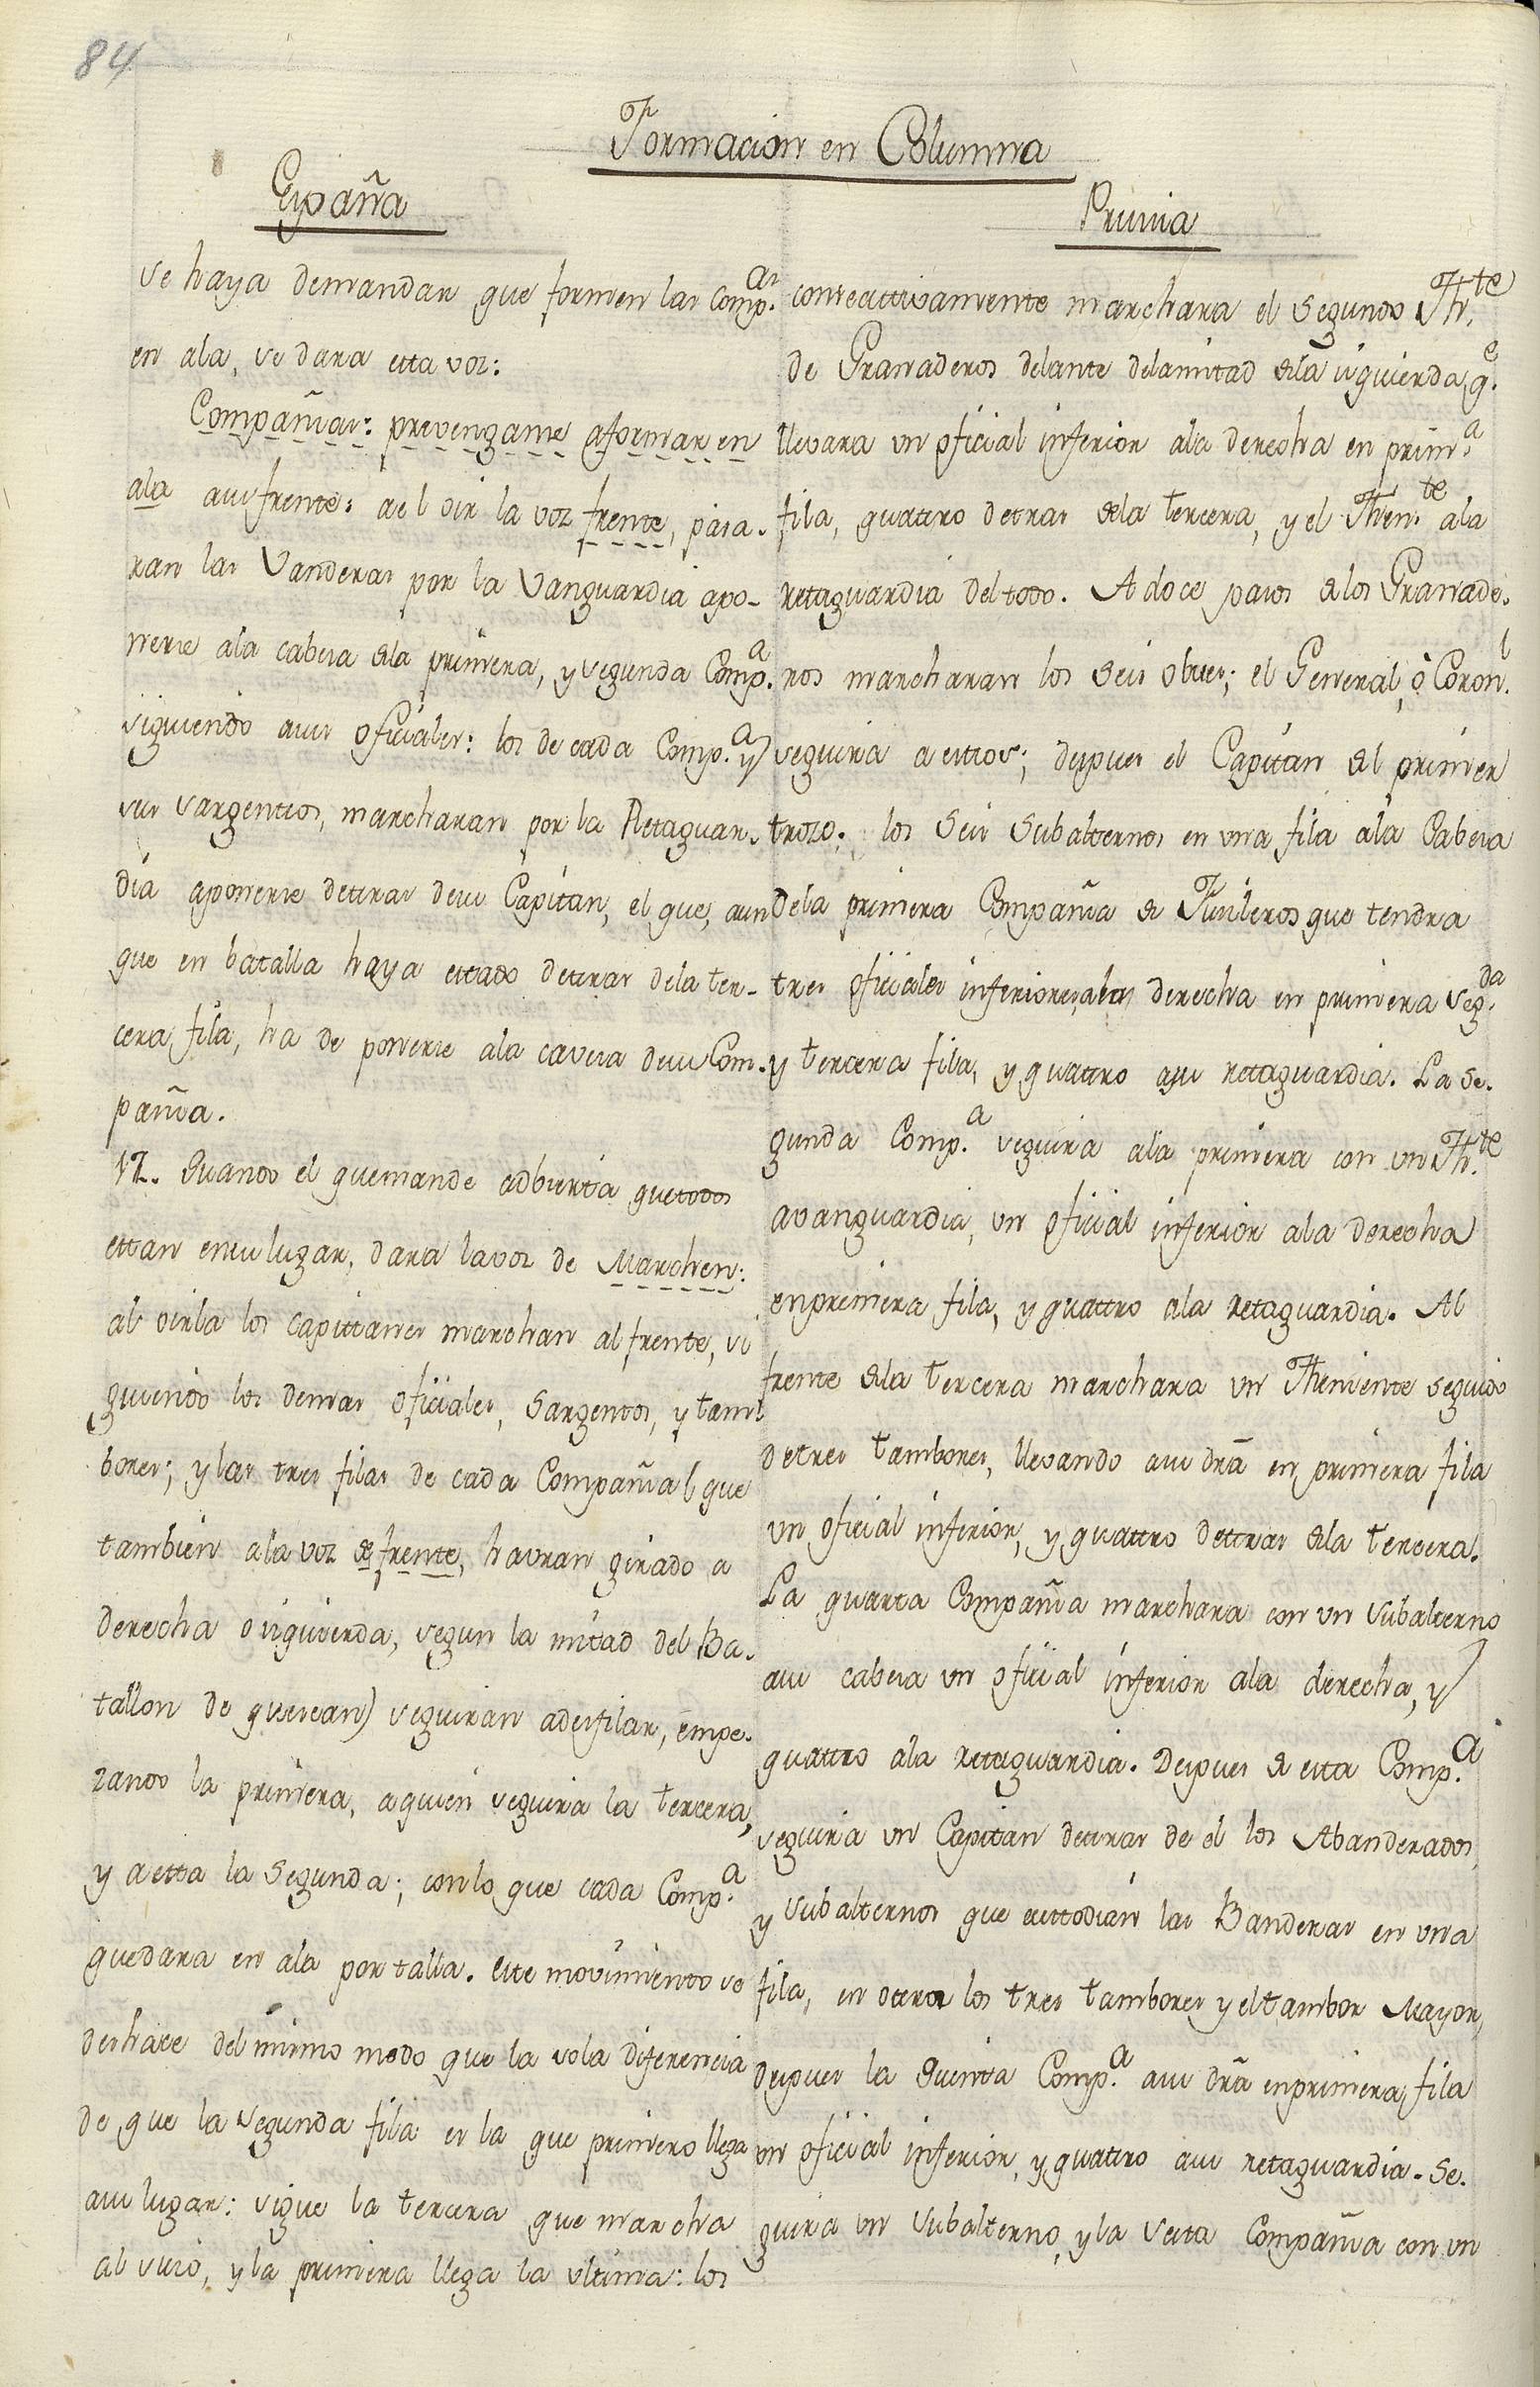 84
Formacion en Columna
España
se haya demandar que formen las Comp.as
en ala, se dara esta voz:
Compañias: prevengame aformar en
ala asu frente: ael oir la voz frente, pasa-
ran las Vanderas por la Vanguardia apo-
nerse ala cabesa dela primera, y segunda Comp.a
siguiendo asus oficiales: los de cada Comp.a y
sus sargentos, marcharan por la Retaguar-
dia aponerse detras desu Capitan, el que, aun
que en batalla haya estado detras dela ter-
cera fila, ha de ponerse ala cavesa desu Com-
pañia.
12. Quando el quemande adbierta quetodos
estan ensu lugar, dara lavoz de Marchen:
al oirla los Capitanes marchan al frente, si
guiendo los demas oficiales, Sargentos, y tam
bores; y las tres filas de cada Compañia (que
tambien ala voz de frente, havran girado a
derecha o izquierda, segun la mitad del Ba-
tallon de quesean) seguiran adesfilar, empe-
zando la primera, aquien seguira la tercera,
y aesta la Segunda; conlo que cada Comp.a
quedara en ala por talla. Este movimiento se
deshace del mismo modo que la sola diferencia
de que la segunda fila es la que primero llega
asu lugar: sigue la tercera que marcha
al suio, y la primera llega la ultima: los
Prusia
consecutivamente marchara el Segundo Th.te
de Granaderos delante delamitad dela izquierda q.e
llevara un oficial inferior ala derecha en prim.a
fila, quattro detras dela tercera, y el Then.te ala
retaguardia del todo. A doce pasos delos Granade-
ros marcharan los seis obues; el General, ò Coron.l
seguira a estos; despues el Capitan del primer
trozo. los Seis Subalternos en una fila ala Cabesa
dela primera Compañia de Fusileros que tendra
tres oficiales inferiores, ala derecha en primera seg.da
y tercera fila, y quattro asu retaguardia. La Se-
gunda Comp.a seguira ala primera con un Th.te
avanguardia, un oficial inferior ala derecha
enprimera fila, y quattro ala retaguardia. Al
frente dela tercera marchara un Theniente seguido
detres tambores, llevando asu dra en primera fila
un oficial inferior, y quattro detras dela tercera.
La quarta Compañia marchara con un Subalterno
asu cabesa un oficial inferior ala derecha, y
quattro ala retaguardia. Despues de esta Comp.a
seguira un Capitan detras de el los Abanderados,
y Subalternos que custodian las Banderas en una
fila, en otra los tres tambores y el tambor Mayor,
despues la Quinta Comp.a asu dra enprimera fila
un oficial inferior, y quattro asu retaguardia. Se-
guira un Subalterno, y la Sesta Compañia con un